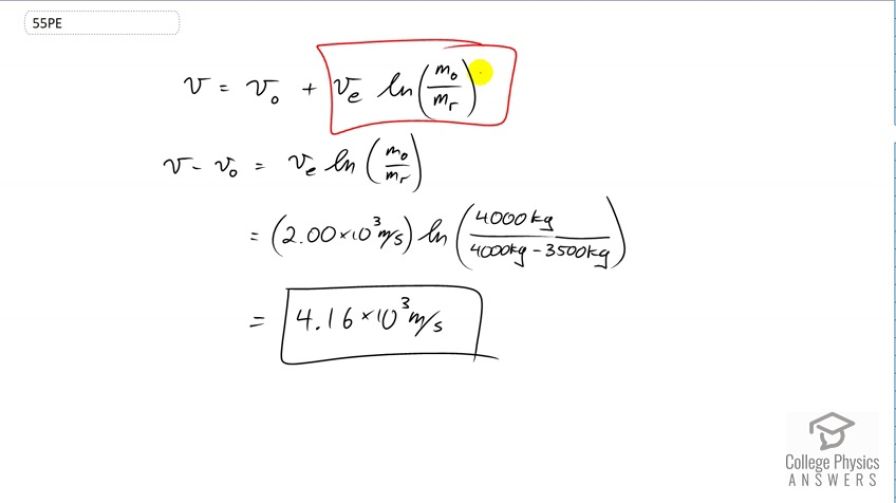 55PE
v = v₀ + vₑ ln(m₀/mᵣ)
v - v₀ = vₑ ln(m₀/mᵣ)
= (2.00×10³m/s) ln(4000kg/4000kg-3500kg)
= 4.16×10³m/s
College Physics
ANSWERS